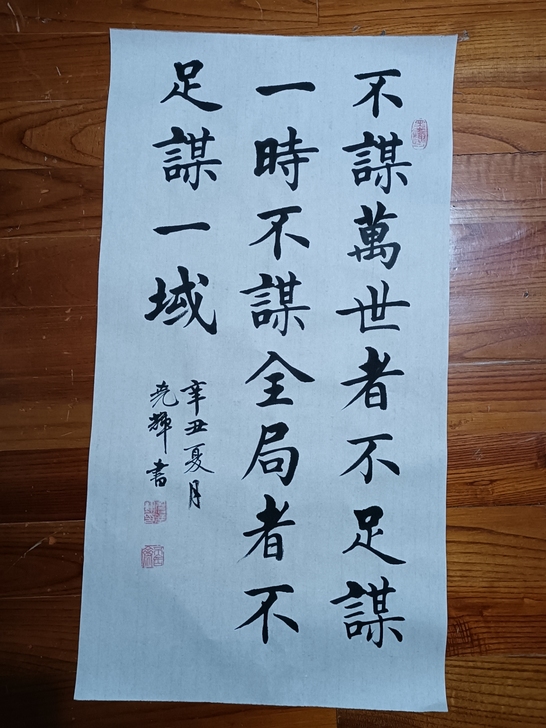 不謀萬世者不足謀
一時不謀全局者不
足謀一域
辛丑夏月
尧輝書